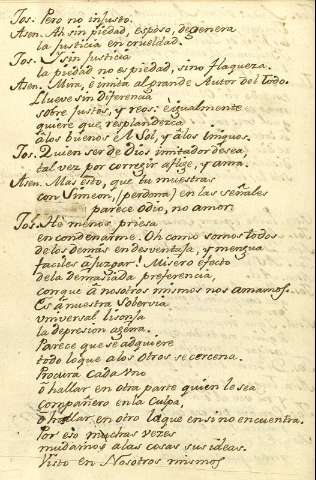 Jos. Pero no injusto.
Asen. Ah sin piedad, esposo, degenera
la Justicia en crueldad.
Jos. Y sin justicia
la piedad no es piedad, sino flaqueza.
Asen. Mira, è imita al grande Autor del Todo.
Llueve sin diferencia
sobre justos, y reos: è igualmente
quiere que resplandezca
à los buenos el Sol, y à los iniquos.
Jos. Quien ser de Dios imitador desea,
tal vez por corregir aflige, y ama.
Asen. Mas esto, que tu muestras
con Simeon, (perdona) en las señales
parece odio, no amor.
Jos. Hè menos priesa
en condenarme. Oh como somos todos
de los demàs en desventaja, y mengua
faciles à juzgar! Misero efecto
de la demasiada preferencia,
con que à nosotros mismos nos amamos.
Es à nuestra sobervia
universal lisonja
la depresion agena.
Parece que se adquiere
todo lo que a los otros se cercena.
Procura cada uno
ò hallar en otra parte quien le sea
compañero en la culpa,
ò hallar en otro lo que en si no encuentra.
Por eso muchas vezes
mudamos a las cosas sus ideas.
Visto en Nosotros mismos